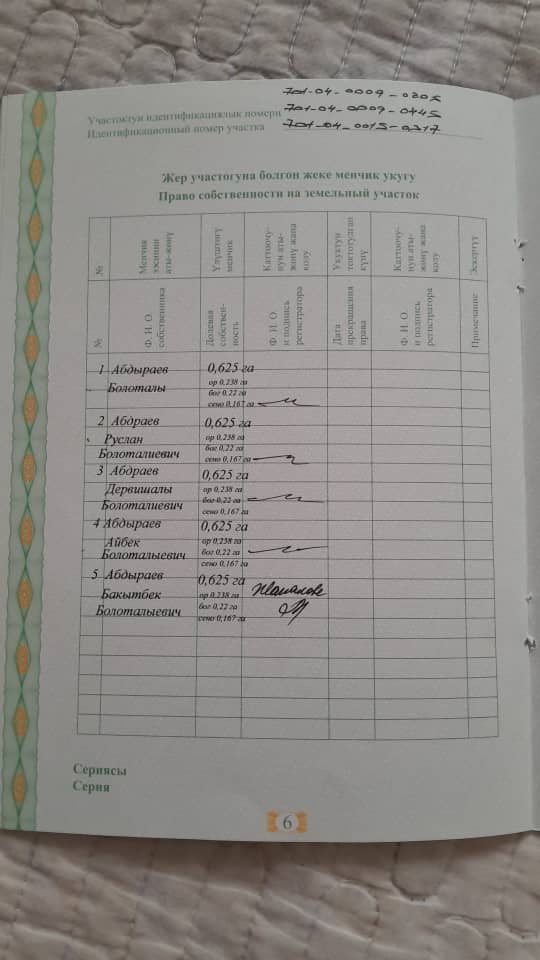 701-04-0009-0205
Участоктун идентификациялык номери 701-04-0009-0445
Идентификационный номер участка 701-04-0015-0317
Жер участогуна болгон жеке менчик укугу
Право собственности на земельный участок
№ Менчик ээсинин аты-жөнү Үлүштөгү менчик Каттоочунун аты-жөнү жана колу Укуктун токтотулган күнү Каттоочунун аты-жөнү жана колу Эскертүү
№ Ф. И. О. собственника Долевая собствен-ность Ф. И. О. и подпись регистратора Дата прекращения права Ф. И. О. и подпись регистратора Примечание
1 Абдыраев 0,625 га
Болоталы ор 0,238 га
бог 0,22 га
сено 0,167 га
2 Абдраев 0,625 га
Руслан ор 0,238 га
бог 0,22 га
Болоталиевич сено 0,167 га
3 Абдраев 0,625 га
Дервишалы ор 0,238 га
Болоталиевич бог 0,22 га
сено 0,167 га
4 Абдыраев 0,625 га
Айбек ор 0,238 га
Болоталыевич бог 0,22 га
сено 0,167 га
5 Абдыраев 0,625 га
Бакытбек ор 0,238 га
Болоталыевич бог 0,22 га
сено 0,167 га
Сериясы
Серия
6